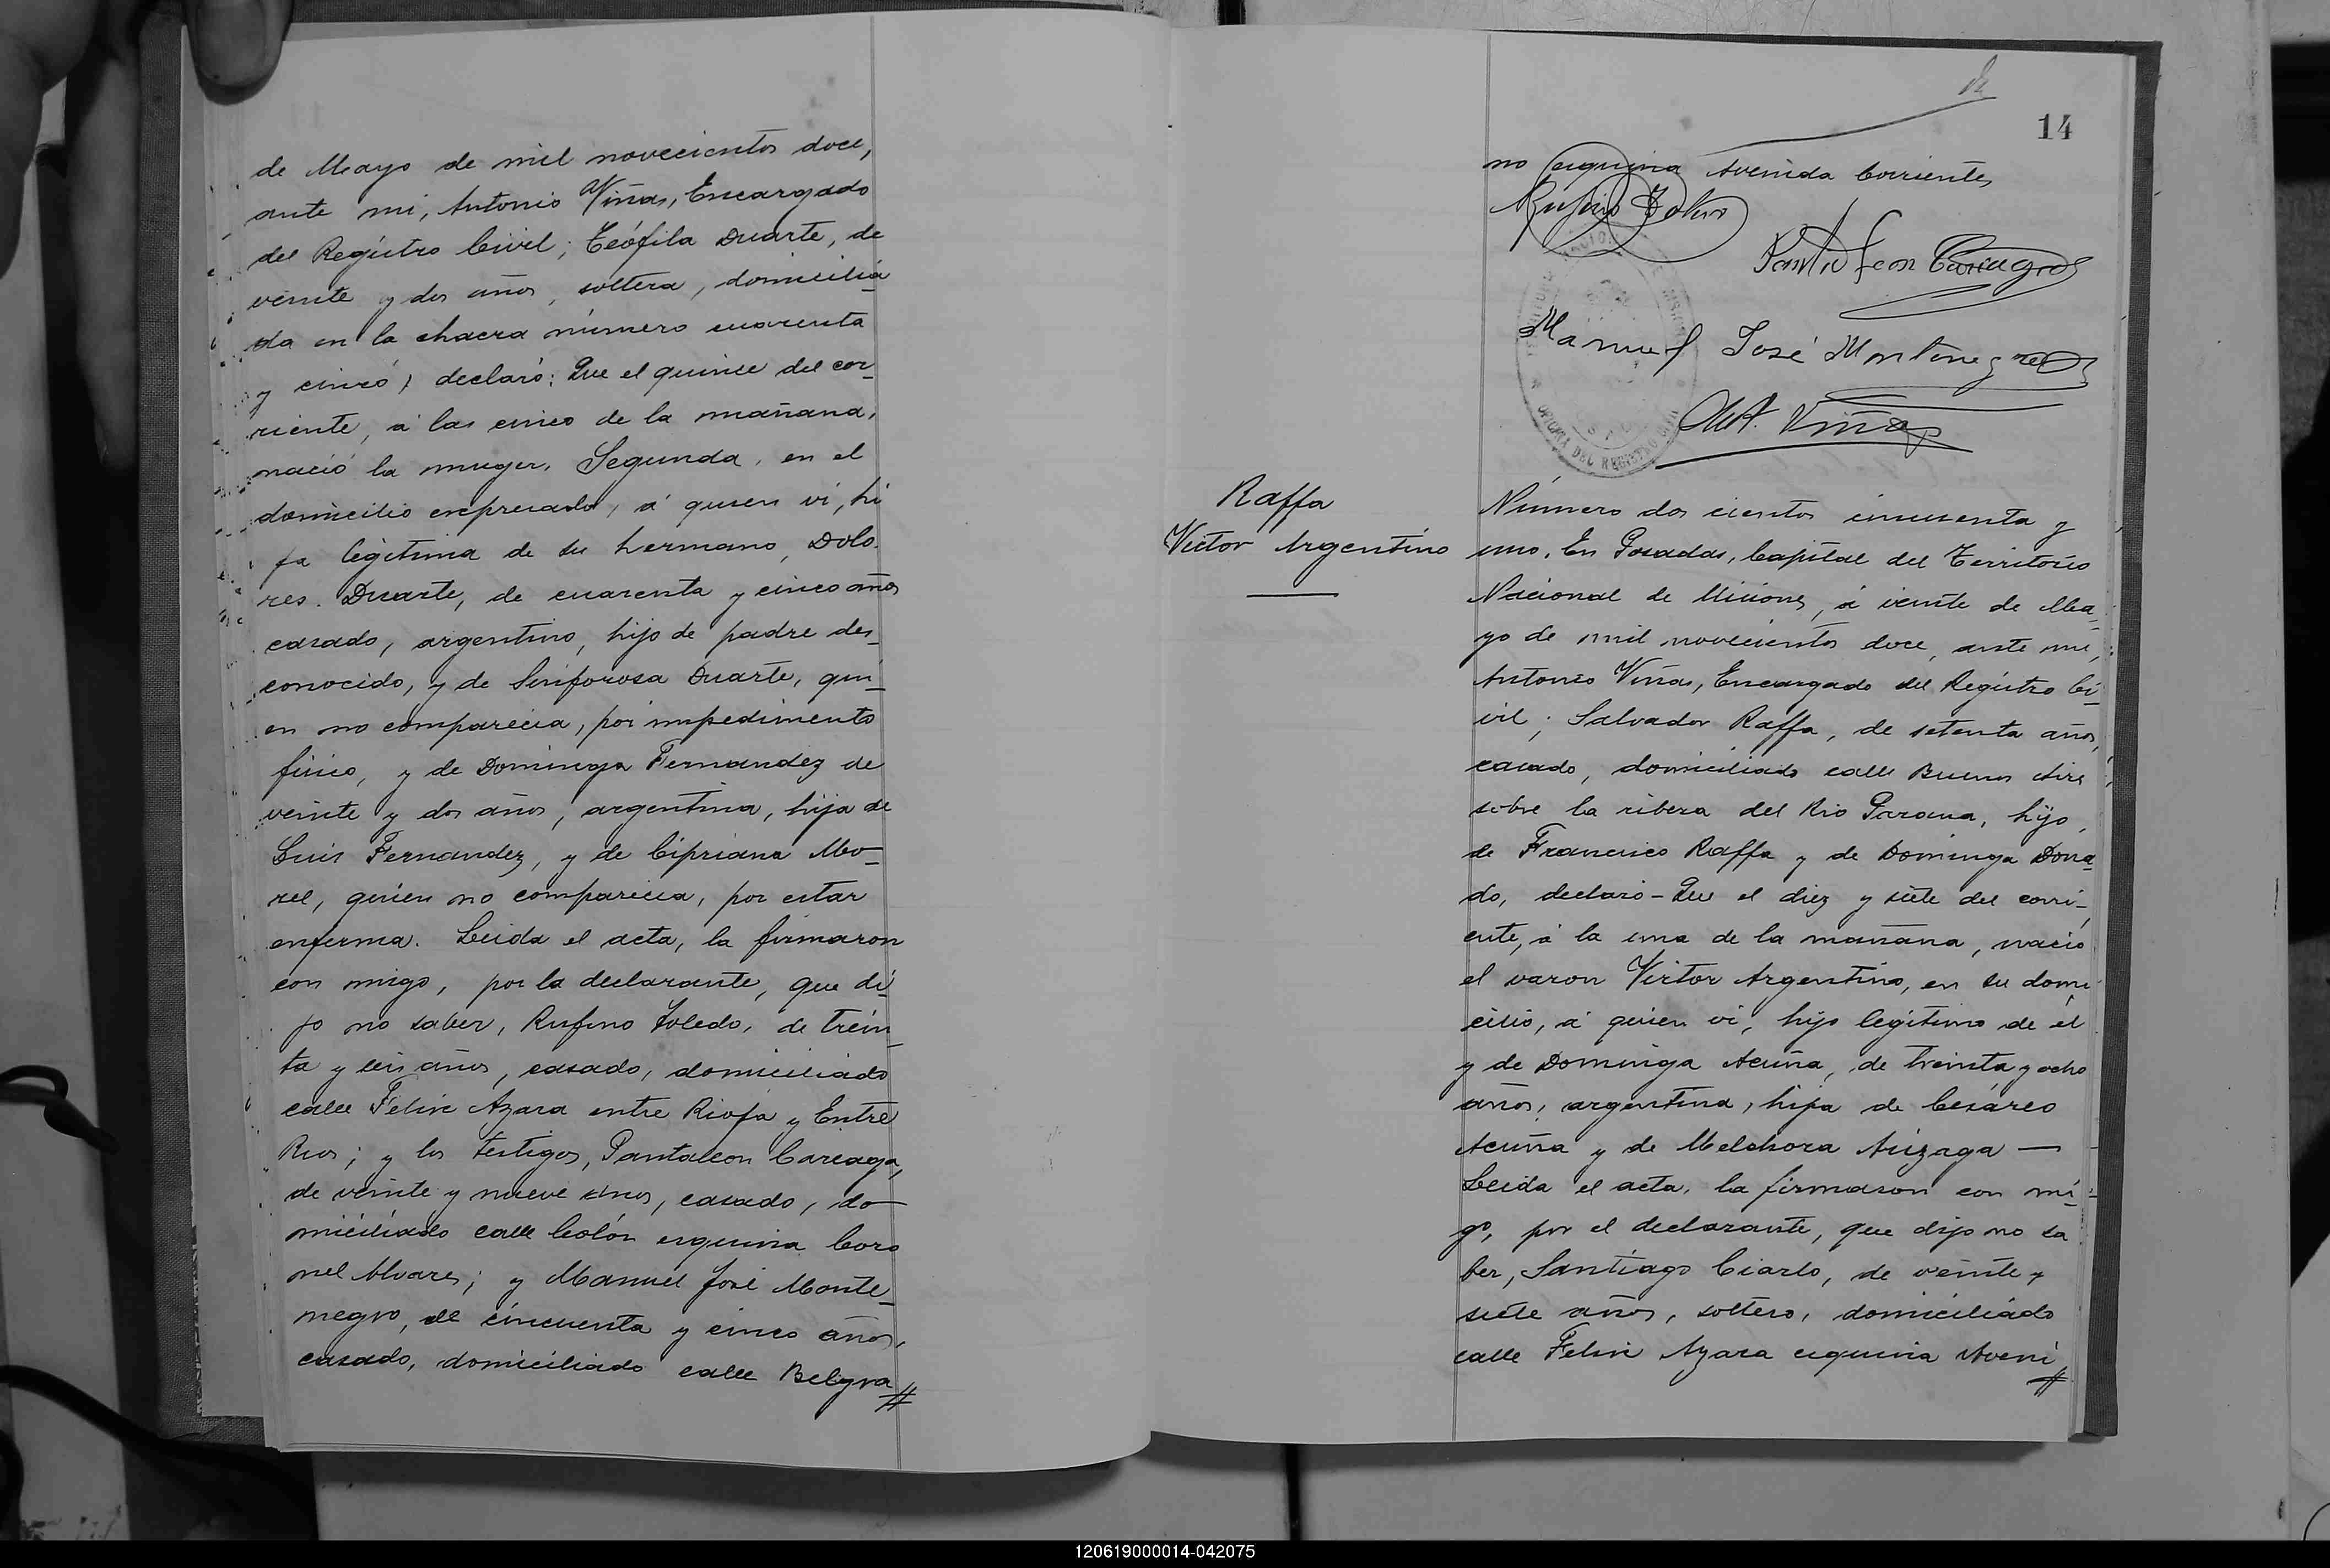 de Mayo de mil novecientos doce,
ante mi, Antonio Viñas, Encargado
del Registro Civil; Teófila Duarte, de
veinte y dos años, soltera, domicilia
da en la chacra número cuarenta
y cinco, declaró: Que el quince del cor_
riente, á las cinco de la mañana,
nació la muger, Segunda, en el
domicilio expresado, á quien vi, hi
ja legítima de su hermano, Dolo.
res. Duarte, de cuarenta y cinco años
casado, argentino, hijo de padre des_
conocido, y de Sinforosa Duarte, qui_
en no comparecia, por impedimento
fisico, y de Dominga Fernandez de
veinte y dos años, argentina, hija de
Luis Fernandez, y de Cipriana Mo_
rel, quien no comparecia, por estar
enferma. Leida el acta, la firmaron
con migo, por la declarante, que di_
jo no saber, Rufino Toledo, de trein_
ta y seis años, casado, domiciliado
calle Felix Azara entre Rioja y Entre
Rios; y los testigos, Pantaleon Careaga,
de veinte y nueve años, casado, do
miciliado calle Colón esquina Coro
nel Alvares; y Manuel José Monte_
negro, de cincuenta y cinco años,
casado, domiciliado calle Belgra//
14
no esquina Avenida Corrientes
Rufino Toledo
Pantaleon Careaga
Manuel José Montenegro
Ant. Viñas
OFICINA DEL REGISTRO CIVIL
Raffa
Victor Argentino
Número dos cientos cincuenta y
uno. En Posadas, Capital del Territorio
Nacional de Misiones, á veinte de Ma_
yo de mil novecientos doce, ante mi,
Antonio Viñas, Encargado del Registro Ci_
vil; Salvador Raffa, de setenta años,
casado, domiciliado calle Buenos Aires
sobre la ribera del Rio Parana, hijo,
de Francisco Raffa y de Dominga Dona_
do, declaró - Que el diez y siete del corri_
ente, á la una de la mañana, nació
el varon Victor Argentino, en su domi
cilio, á quien vi, hijo legítimo de él
y de Dominga Acuña, de treinta y ocho
años, argentina, hija de Cesáreo
Acuña y de Melchora Arizaga —
Leida el acta, la firmaron con mi_
go, por el declarante, que dijo no sa
ber, Santiago Ciarlo, de veinte y
siete años, soltero, domiciliado
calle Felix Azara esquina Aveni//
120619000014-042075